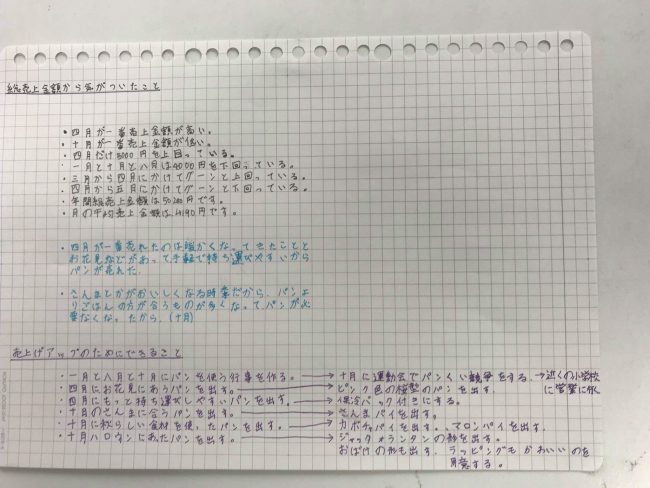 総売上金額から気がついたこと
・四月が一番売上金額が高い。
・十月が一番売上金額が低い。
・四月だけ5000円を上回っている。
・一月と十月と八月は4000円を下回っている。
・三月から四月にかけてグーンと上回っている。
・四月から五月にかけてグーンと下回っている。
・年間総売上金額は50280円です。
・月の平均売上金額は4190円です。
・四月が一番売れたのは暖かくなってきたことと
お花見などがあって手軽で持ち運びやすいから
パンが売れた。
・さんまとかがおいしくなる時季だから、パンよ
りごはんの方が合うものが多くなってパンが必
要なくなったから。(十月)
売上げアップのためにできること
・一月と八月と十月にパンを使う行事を作る。→十月に運動会でパンくい競争をする。→近くの小学校
に営業に行く
・四月にお花見にあうパンを出す。→ピンク色の桜型のパンを出す。
・四月にもっと持ち運びしやすいパンを出す。→保冷パック付きにする。
・十月のさんまに合うパンを出す。→さんまパイを出す。
・十月に秋らしい食材を使ったパンを出す。→カボチャパイを出す。、マロンパイを出す。
・十月ハロウンにあたパンを出す。→ジャックオランタンの形を出す。
おばけの形も出す。ラッピングもかわいいのを
用意する。